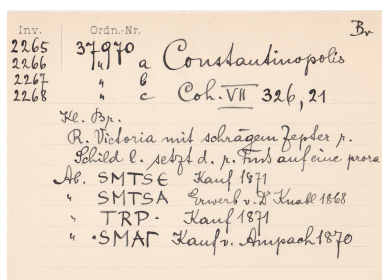 Inv. Ordn.-Nr. Br
2265 37970 Constantinopolis
2266 " a
2267 " b
2268 " c Coh. VII 326, 21
Kl. Br.
R. Victoria mit schrägem Zepter r.
Schild l. setzt d. r. Fuß auf eine prora
Ab. SMTSE Kauf 1871
" SMTSA Erwerb v. Dr Knabl 1868
" TRP· Kauf 1871
" ·SMAΓ Kauf v. Ampach 1870